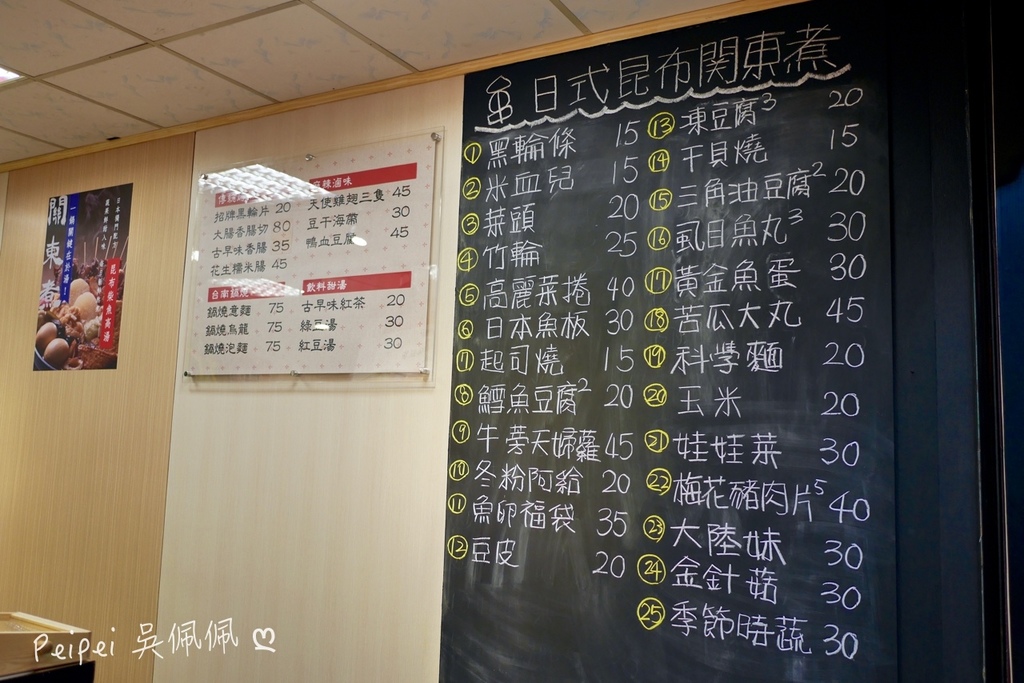 關東煮
一鍋關鍵在於湯!
日本獨門配方
昆布柴魚高湯
招牌黑輪片 20
大腸香腸切 80
古早味香腸 35
花生糯米腸 45
麻辣滷味
天使雞翅三隻 45
豆干海帶 30
鴨血豆腐 45
台南鍋燒
鍋燒意麵 75
鍋燒烏龍 75
鍋燒泡麵 75
飲料甜湯
古早味紅茶 20
綠豆湯 30
紅豆湯 30
日式昆布関東煮
① 黑輪條 15
② 米血兒 15
③ 菜頭 20
④ 竹輪 25
⑤ 高麗菜捲 40
⑥ 日本魚板 30
⑦ 起司燒 15
⑧ 鱈魚豆腐² 20
⑨ 牛蒡天婦蘿 45
⑩ 冬粉阿給 20
⑪ 魚卵福袋 35
⑫ 豆皮 20
⑬ 凍豆腐³ 20
⑭ 干貝燒 15
⑮ 三角油豆腐² 20
⑯ 虱目魚丸³ 30
⑰ 黃金魚蛋 30
⑱ 苦瓜大丸 45
⑲ 科學麵 20
⑳ 玉米 20
㉑ 娃娃菜 30
㉒ 梅花豬肉片⁵ 40
㉓ 大陸妹 30
㉔ 金針菇 30
㉕ 季節時蔬 30
Peipei 吳佩佩